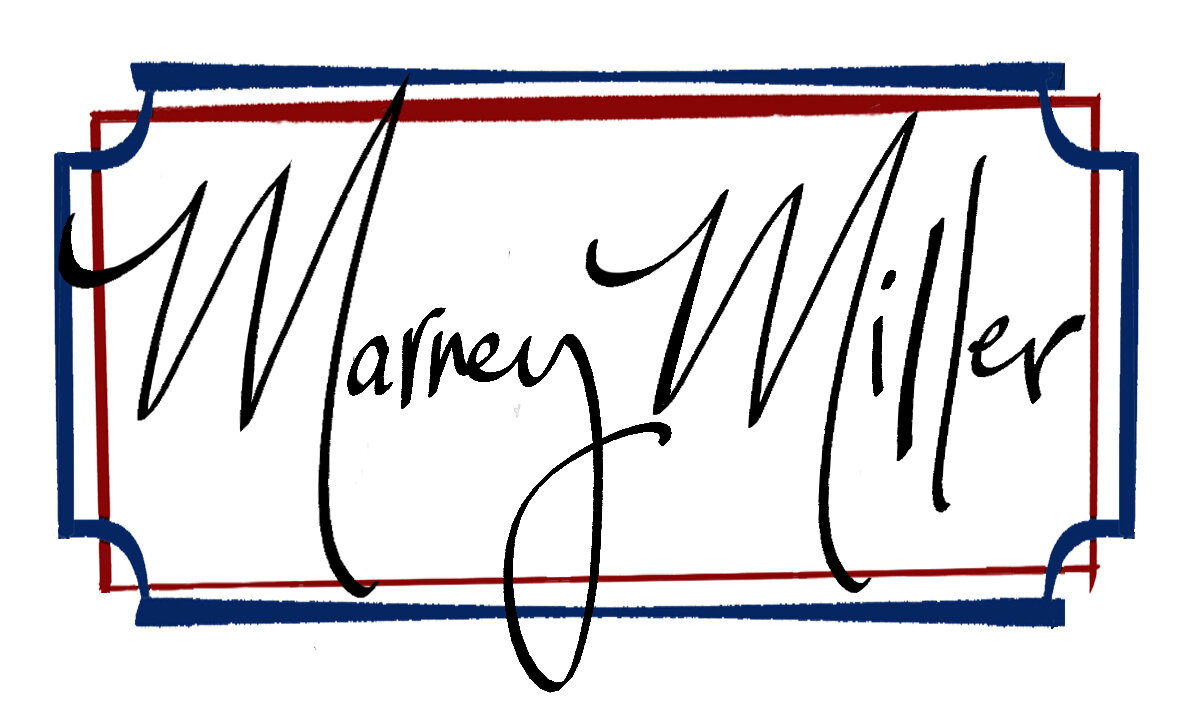 Marney Miller